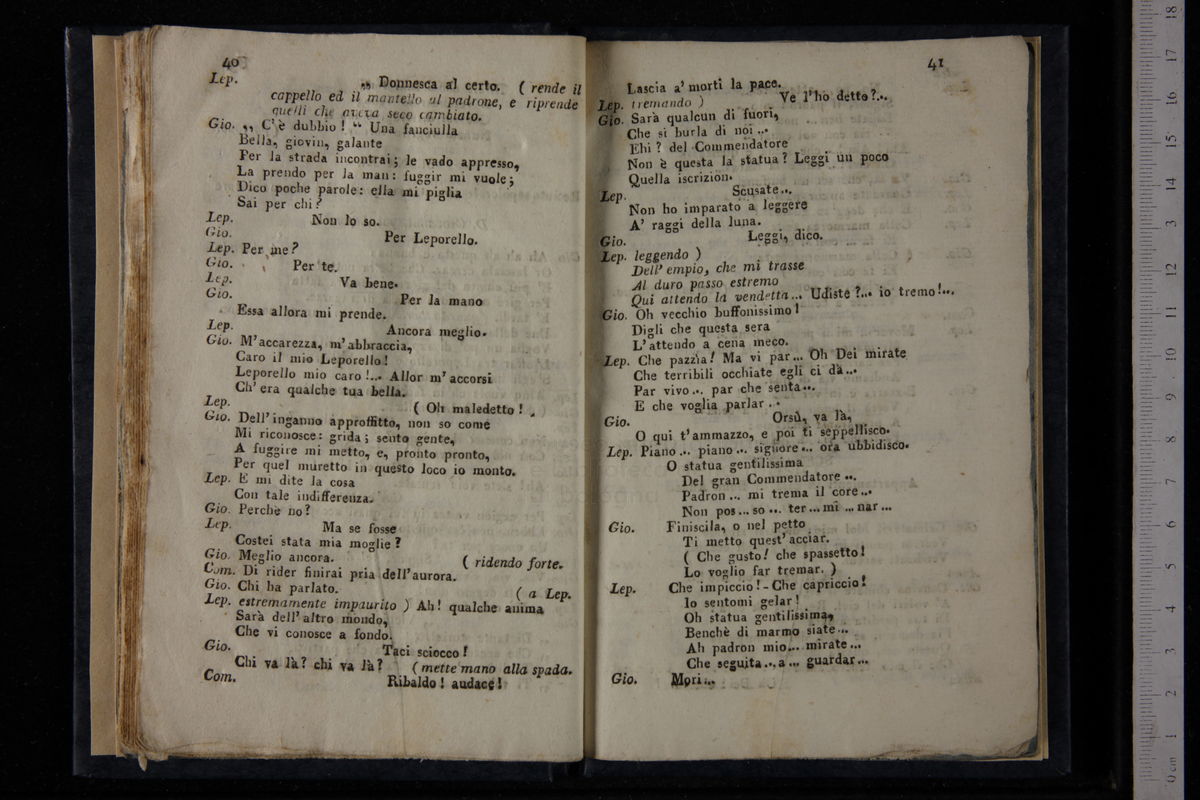 40
Lep. „ Donnesca al certo. ( rende il
cappello ed il mantello al padrone, e riprende
quelli che aveva seco cambiato.
Gio. „ C'è dubbio! “ Una fanciulla
Bella, giovin, galante
Per la strada incontrai; le vado appresso,
La prendo per la man: fuggir mi vuole;
Dico poche parole: ella mi piglia
Sai per chi?
Lep. Non lo so.
Gio. Per Leporello.
Lep. Per me?
Gio. Per te.
Lep. Va bene.
Gio. Per la mano
Essa allora mi prende.
Lep. Ancora meglio.
Gio. M'accarezza, m'abbraccia,
Caro il mio Leporello!
Leporello mio caro!... Allor m'accorsi
Ch'era qualche tua bella.
Lep. ( Oh maledetto!
Gio. Dell'inganno approffitto, non so come
Mi riconosce: grida; sento gente,
A fuggire mi metto, e, pronto pronto,
Per quel muretto in questo loco io monto.
Lep. E mi dite la cosa
Con tale indifferenza.
Gio. Perchè no?
Lep. Ma se fosse
Costei stata mia moglie?
Gio. Meglio ancora. ( ridendo forte.
Com. Di rider finirai pria dell'aurora.
Gio. Chi ha parlato. ( a Lep.
Lep. estremamente impaurito ) Ah! qualche anima
Sarà dell'altro mondo,
Che vi conosce a fondo.
Gio. Taci sciocco!
Chi va là? chi va là? ( mette mano alla spada.
Com. Ribaldo! audace!
41
Lascia a' morti la pace.
Lep. tremando ) Ve l'ho detto?...
Gio. Sarà qualcun di fuori,
Che si burla di noi...
Ehi? del Commendatore
Non è questa la statua? Leggi un poco
Quella iscrizion.
Lep. Scusate...
Non ho imparato a leggere
A' raggi della luna.
Gio. Leggi, dico.
Lep. leggendo )
Dell' empio, che mi trasse
Al duro passo estremo
Qui attendo la vendetta... Udiste?... io tremo!...
Gio. Oh vecchio buffonissimo!
Digli che questa sera
L'attendo a cena meco.
Lep. Che pazzia! Ma vi par... Oh Dei mirate
Che terribili occhiate egli ci dà...
Par vivo... par che senta...
E che voglia parlar...
Gio. Orsù, va là,
O qui t'ammazzo, e poi ti seppellisco.
Lep. Piano... piano... signore... ora ubbidisco.
O statua gentilissima
Del gran Commendatore...
Padron... mi trema il core...
Non pos... so... ter... mi... nar...
Gio. Finiscila, o nel petto
Ti metto quest'acciar.
( Che gusto! che spassetto!
Lo voglio far tremar. )
Lep. Che impiccio! - Che capriccio!
Io sentomi gelar!
Oh statua gentilissima,
Benchè di marmo siate...
Ah padron mio... mirate...
Che seguita... a... guardar...
Gio. Mori...
0 cm 1 2 3 4 5 6 7 8 9 10 11 12 13 14 15 16 17 18